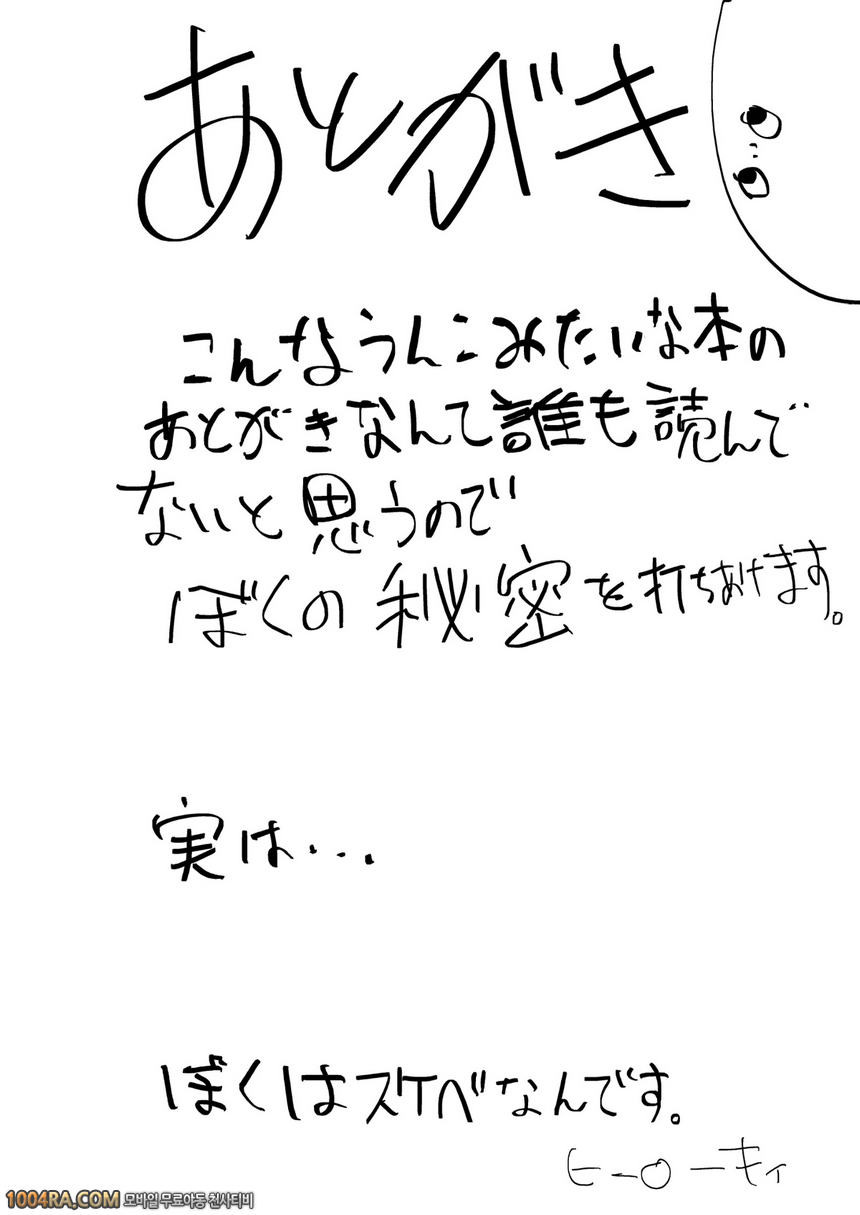 あとがき
こんなうんこみたいな本の
あとがきなんて誰も読んで
ないと思うので
ぼくの秘密を打ちあけます。
実は...
ぼくはスケベなんです。
ヒーローキィ
1004RA.COM 모바일 무료야동 천사티비